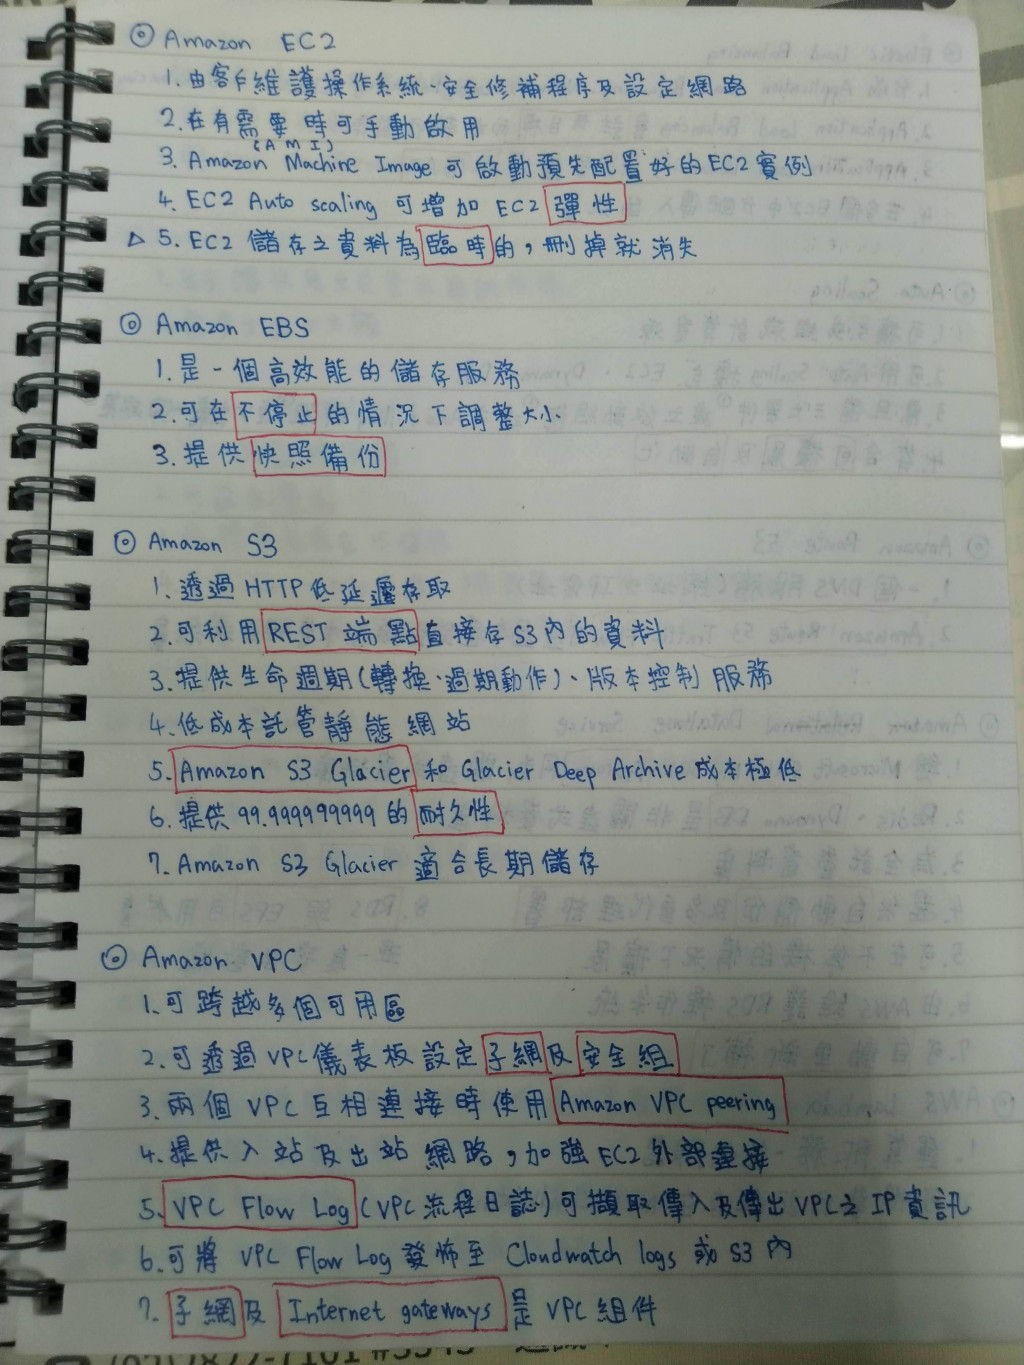 ◎ Amazon EC2
1. 由客戶維護操作系統、安全修補程序及設定網路
2. 在有需要時可手動啟用
(AMI)
3. Amazon Machine Image 可啟動預先配置好的EC2實例
4. EC2 Auto scaling 可增加 EC2 彈性
△ 5. EC2 儲存之資料為臨時的,刪掉就消失
◎ Amazon EBS
1. 是一個高效能的儲存服務
2. 可在不停止的情況下調整大小
3. 提供快照備份
◎ Amazon S3
1. 透過HTTP低延遲存取
2. 可利用REST端點直接存S3內的資料
3. 提供生命週期(轉換、過期動作)、版本控制服務
4. 低成本託管靜態網站
5. Amazon S3 Glacier 和 Glacier Deep Archive 成本極低
6. 提供99.999999999的耐久性
7. Amazon S3 Glacier 適合長期儲存
◎ Amazon VPC
1. 可跨越多個可用區
2. 可透過VPC儀表板設定子網及安全組
3. 兩個VPC互相連接時使用Amazon VPC peering
4. 提供入站及出站網路,加強EC2外部連接
5. VPC Flow Log(VPC流程日誌)可擷取傳入及傳出VPC之IP資訊
6. 可將 VPC Flow Log 發佈至 Cloudwatch logs 或 S3 內
7. 子網及 Internet gateways 是 VPC 組件